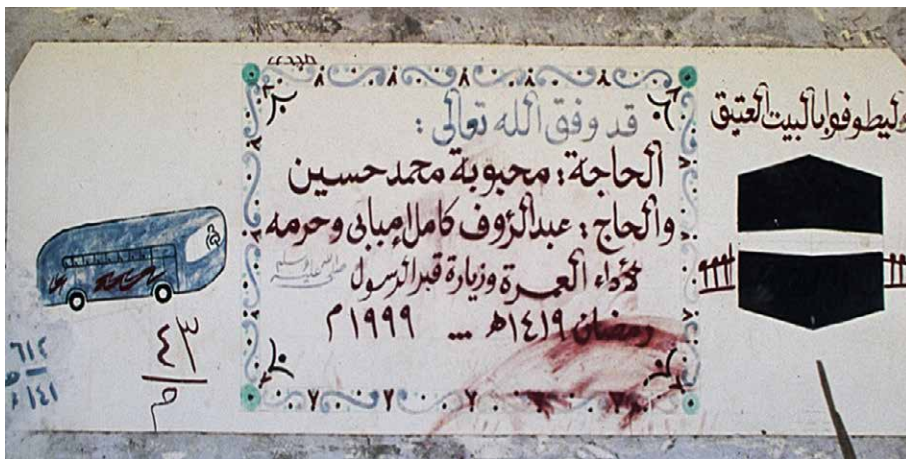 وليطوفوا بالبيت العتيق
مجدى
قد وفق الله تعالى :
الحاجة : محبوبة محمد حسين
والحاج : عبد الرؤف كامل إمبابى وحرمه
لأداء العمرة وزيارة قبر الرسول
صلى الله عليه وسلم
رمضان ١٤١٩ ه ... ١٩٩٩ م
٦١٢
١٤١